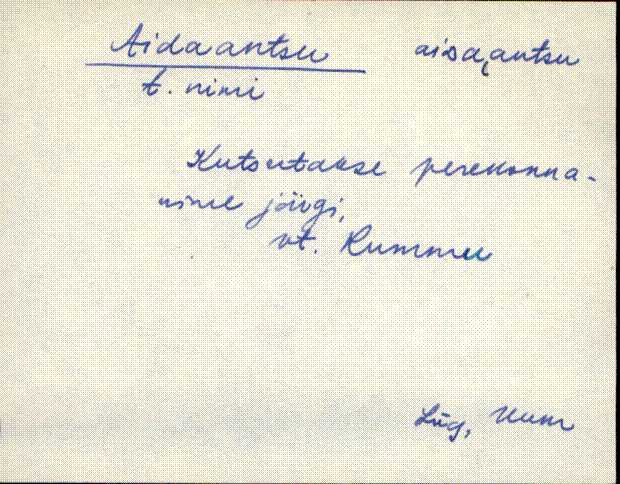 Aidaantsu aiᴅa͔antsu
t. nimi
Kutsutakse perekonna-
nime järgi,
vt. Rummu
Lüg,